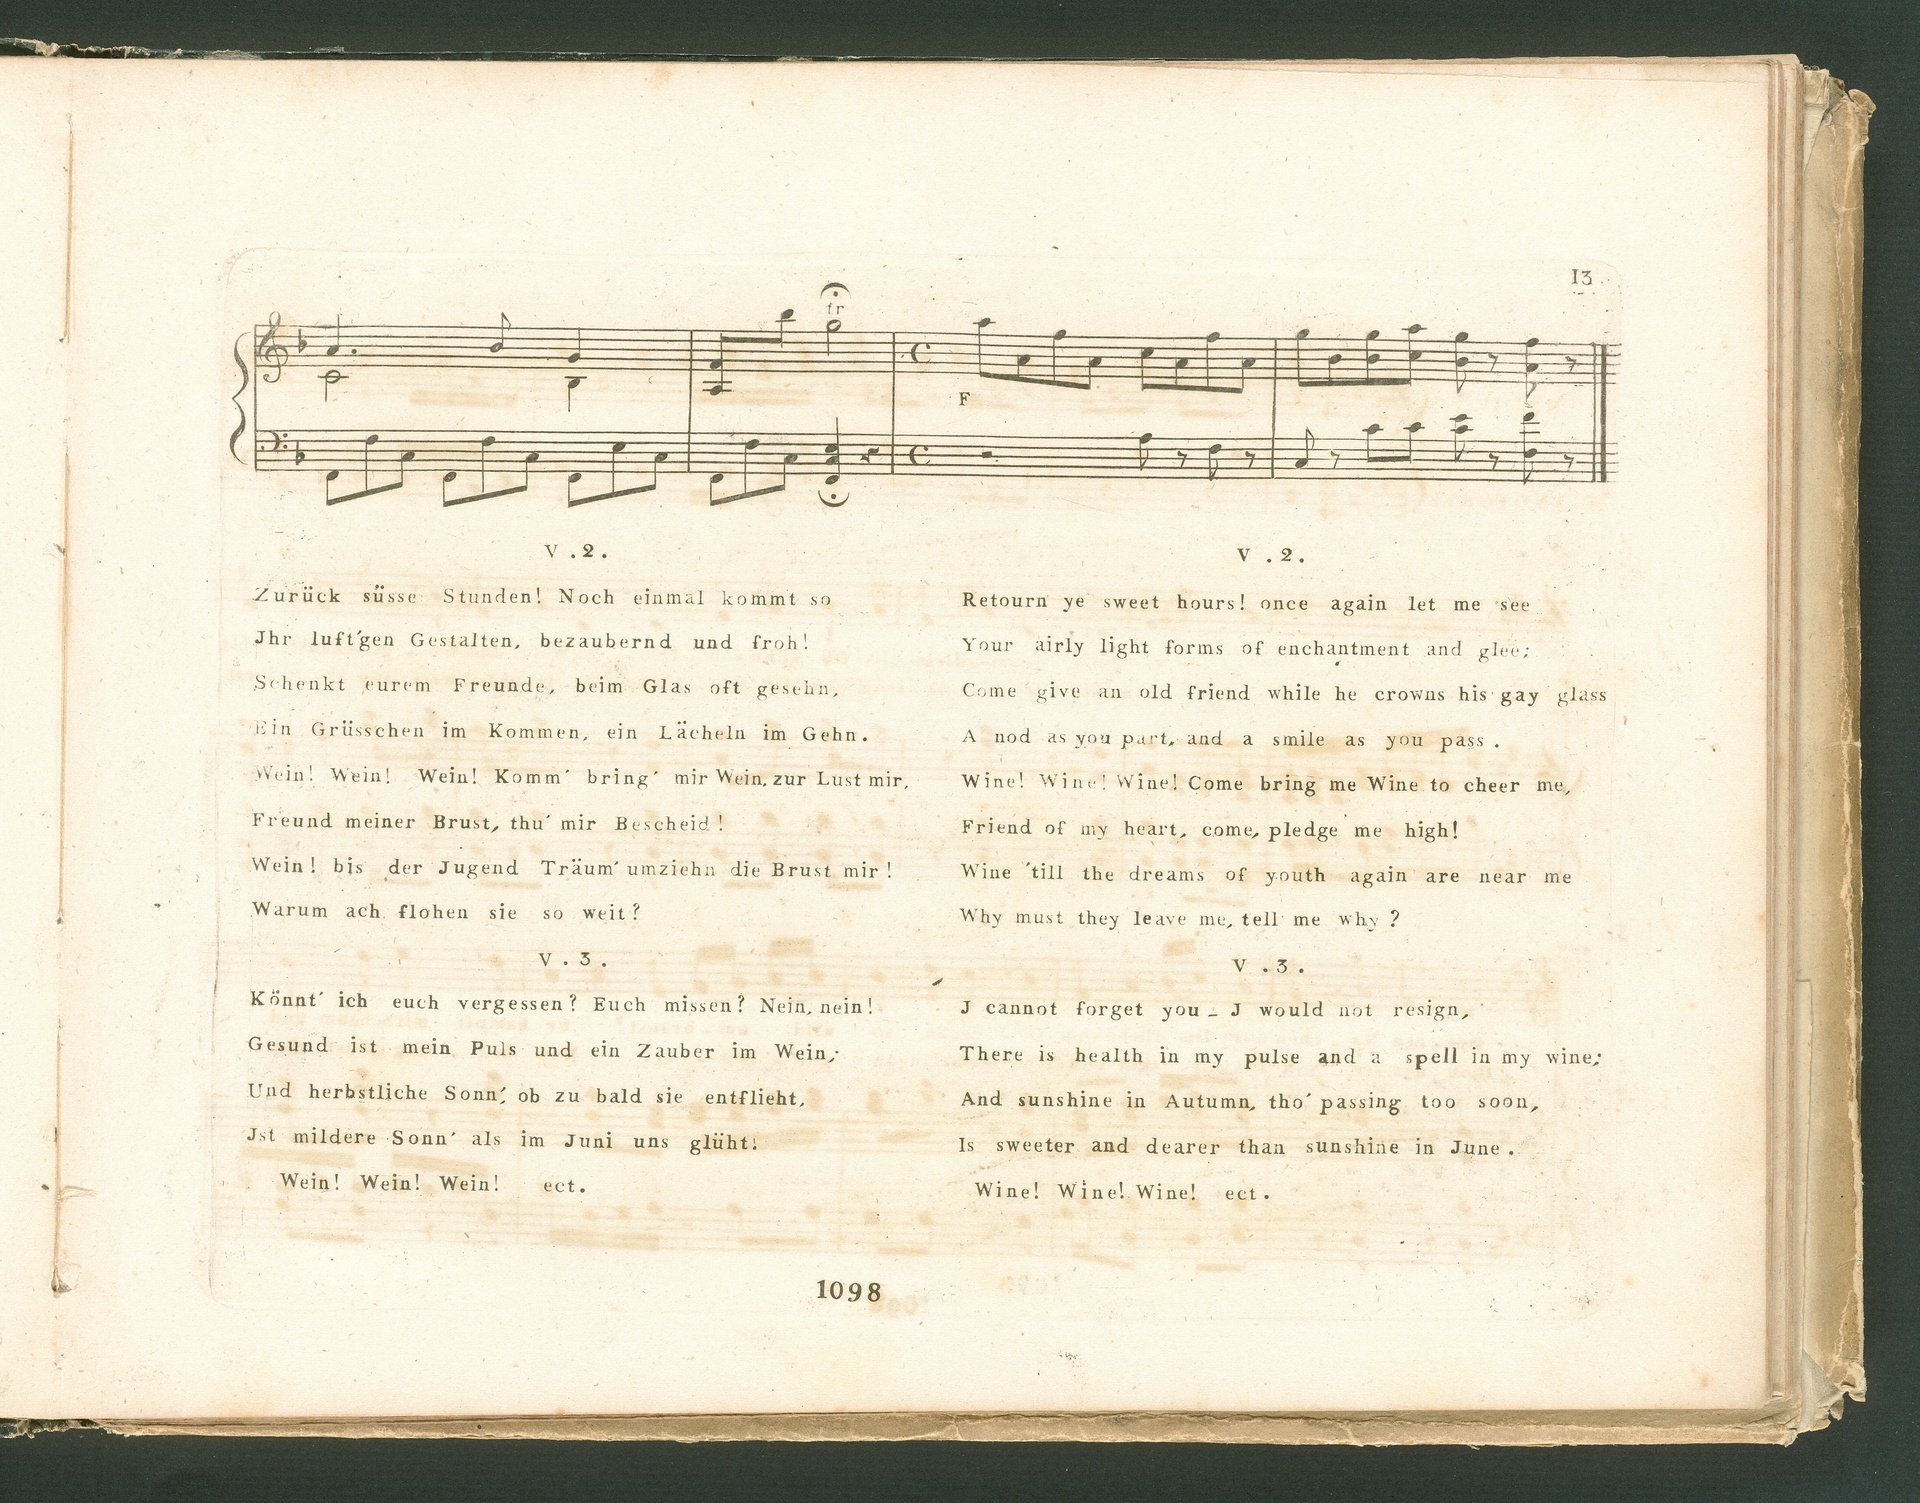 13
tr
F
V.2.
Zurück süsse Stunden! Noch einmal kommt so
Jhr luft'gen Gestalten, bezaubernd und froh!
Schenkt eurem Freunde, beim Glas oft gesehn,
Ein Grüsschen im Kommen, ein Lächeln im Gehn.
Wein! Wein! Wein! Komm' bring' mir Wein, zur Lust mir,
Freund meiner Brust, thu' mir Bescheid!
Wein! bis der Jugend Träum' umziehn die Brust mir!
Warum ach flohen sie so weit?
V.3.
Könnt' ich euch vergessen? Euch missen? Nein, nein!
Gesund ist mein Puls und ein Zauber im Wein;
Und herbstliche Sonn', ob zu bald sie entflieht,
Jst mildere Sonn' als im Juni uns glüht!
Wein! Wein! Wein! ect.
V.2.
Retourn ye sweet hours! once again let me see
Your airly light forms of enchantment and glee;
Come give an old friend while he crowns his gay glass
A nod as you part, and a smile as you pass.
Wine! Wine! Wine! Come bring me Wine to cheer me,
Friend of my heart, come, pledge me high!
Wine 'till the dreams of youth again are near me
Why must they leave me, tell me why?
V.3.
J cannot forget you_ J would not resign,
There is health in my pulse and a spell in my wine;
And sunshine in Autumn, tho' passing too soon,
Is sweeter and dearer than sunshine in June.
Wine! Wine! Wine! ect.
1098